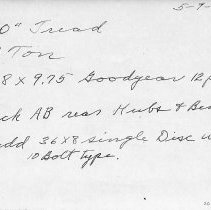 5-9-
0" Tread
Ton
8 x 9.75 Goodyear 12 p
ck AB rear Hubs & Be
dd 36x8 single Disc w
10 Bolt type.